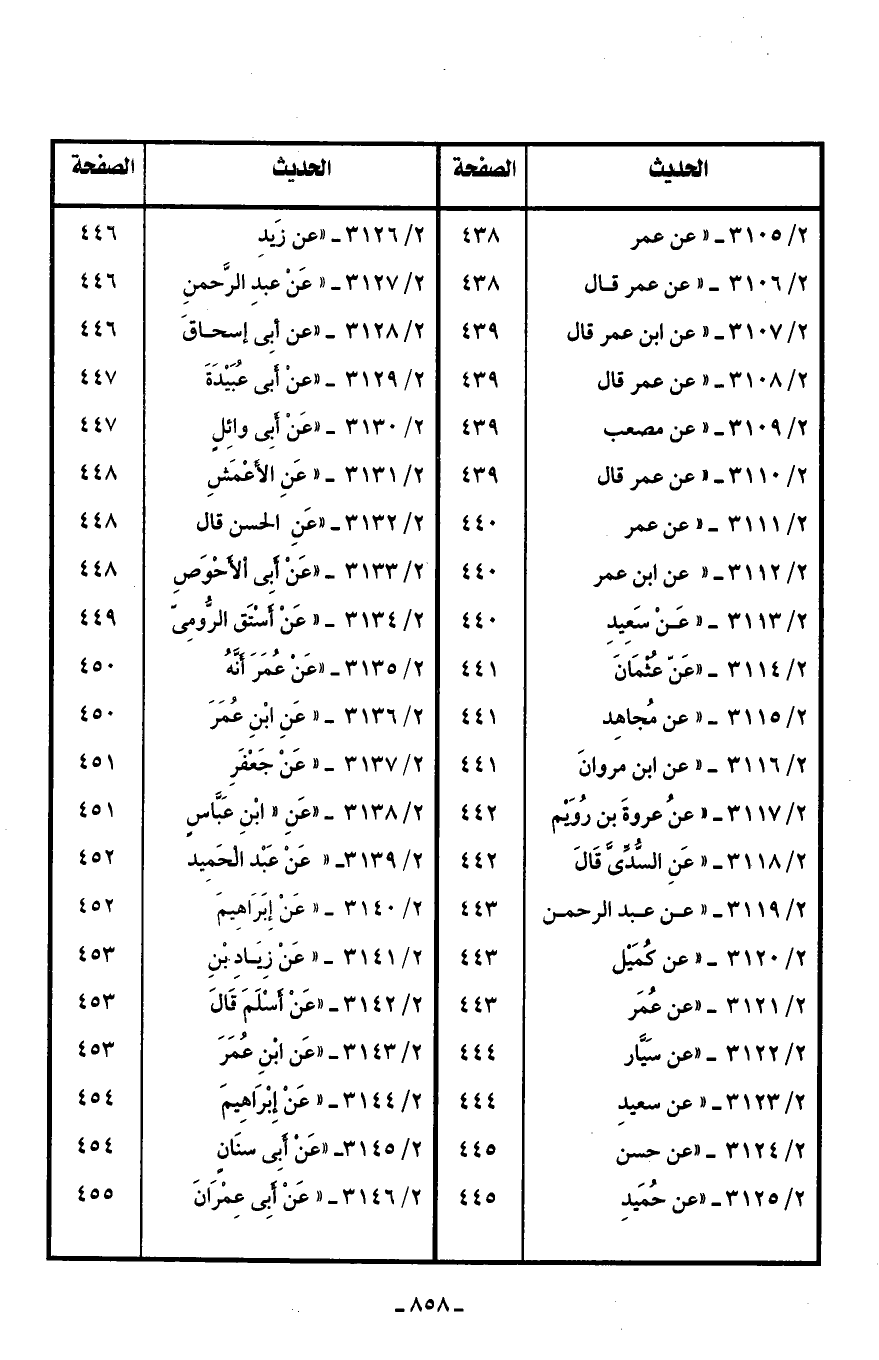 الحديث الصفحة الحديث الصفحة
٢/ ٣١٠٥ـ « عن عمر ٤٣٨ ٢/ ٣١٢٦ ـ «عن زَيدِ ٤٤٦
٢/ ٣١٠٦ ـ « عن عمر قـال ٤٣٨ ٢/ ٣١٢٧ ـ « عَنْ عبدِ الرَّحمنِ ٤٤٦
٢/ ٣١٠٧ ـ « عن ابن عمر قال ٤٣٩ ٢/ ٣١٢٨ ـ «عن أبِى إسحـاقَ ٤٤٦
٢/ ٣١٠٨ ـ « عن عمر قال ٤٣٩ ٢/ ٣١٢٩ ـ «عنْ أَبى عُبَيْدَةَ ٤٤٧
٢/ ٣١٠٩ـ « عن مصعب ٤٣٩ ٢/ ٣١٣٠ ـ «عَنْ أَبِى وائِلٍ ٤٤٧
٢/ ٣١١٠ ـ « عن عمر قال ٤٣٩ ٢/ ٣١٣١ ـ « عَنِ الأَعْمَشِ ٤٤٨
٢/ ٣١١١ ـ « عن عمر ٤٤٠ ٢/ ٣١٣٢ ـ «عَنِ الحسن قال ٤٤٨
٢/ ٣١١٢ ـ « عن ابن عمر ٤٤٠ ٢/ ٣١٣٣ ـ «عَنْ أَبِى الأَحْوَصِ ٤٤٨
٢/ ٣١١٣ ـ « عَـنْ سَعِيدِ ٤٤٠ ٢/ ٣١٣٤ ـ « عَنْ أَسْتَق الرُّومِىّ ٤٤٩
٢/ ٣١١٤ ـ «عَنّ عُثْمَانَ ٤٤١ ٢/ ٣١٣٥ ـ «عَنْ عُمَرَ أَنَّهُ ٤٥٠
٢/ ٣١١٥ ـ « عن مُجاهِد ٤٤١ ٢/ ٣١٣٦ ـ « عَنِ ابْنِ عُمَرَ ٤٥٠
٢/ ٣١١٦ ـ « عن ابن مروانَ ٤٤١ ٢/ ٣١٣٧ ـ « عَنْ جَعْفَرِ ٤٥١
٢/ ٣١١٧ـ « عنُ عروةَ بن رُوَيْم ٤٤٢ ٢/ ٣١٣٨ ـ «عَنِ « ابْنِ عَبَّاسٍ ٤٥١
٢/ ٣١١٨ ـ « عَنِ السُّدِّىَّ قَالَ ٤٤٢ ٢/ ٣١٣٩ـ « عَنْ عَبْد الْحَمِيد ٤٥٢
٢/ ٣١١٩ ـ « عـن عـبد الرحمـن ٤٤٣ ٢/ ٣١٤٠ ـ « عَنْ إبَرَاهِيمَ ٤٥٢
٢/ ٣١٢٠ ـ « عن كُمَيْل ٤٤٣ ٢/ ٣١٤١ ـ « عَنْ زِيَـادِ بْنِ ٤٥٣
٢/ ٣١٢١ ـ «عن عُمَر ٤٤٣ ٢/ ٣١٤٢ ـ «عَنْ أَسْلَمَ قَالَ ٤٥٣
٢/ ٣١٢٢ ـ «عن سَيَّار ٤٤٤ ٢/ ٣١٤٣ ـ «عَن ابْنِ عُمَرَ ٤٥٣
٢/ ٣١٢٣ـ « عن سعيدِ ٤٤٤ ٢/ ٣١٤٤ ـ « عَنْ إِبْرَاهِيمَ ٤٥٤
٢/ ٣١٢٤ ـ «عن حسن ٤٤٥ ٢/ ٣١٤٥ـ «عَنْ أَبِى سنَانٍ ٤٥٤
٢/ ٣١٢٥ـ «عن حُمَيدِ ٤٤٥ ٢/ ٣١٤٦ ـ « عَنْ أَبِى عِمْرَانَ ٤٥٥
ـ ٨٥٨ ـ